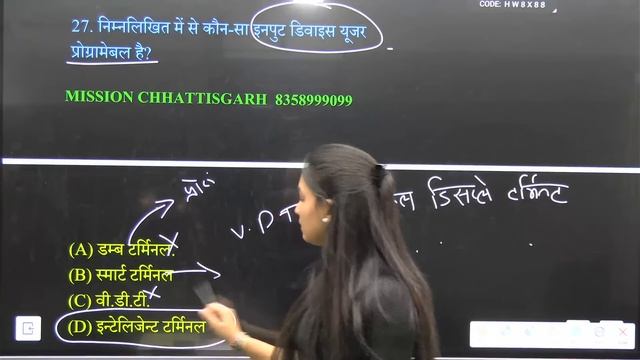 CODE: HW8X88
27. निम्नलिखित में से कौन-सा इनपुट डिवाइस यूजर
प्रोग्रामेबल है?
MISSION CHHATTISGARH 8358999099
V. D डिसप्ले
(A) डम्ब टर्मिनल.
(B) स्मार्ट टर्मिनल
(C) वी.डी.टी.
(D) इन्टेलिजेन्ट टर्मिनल